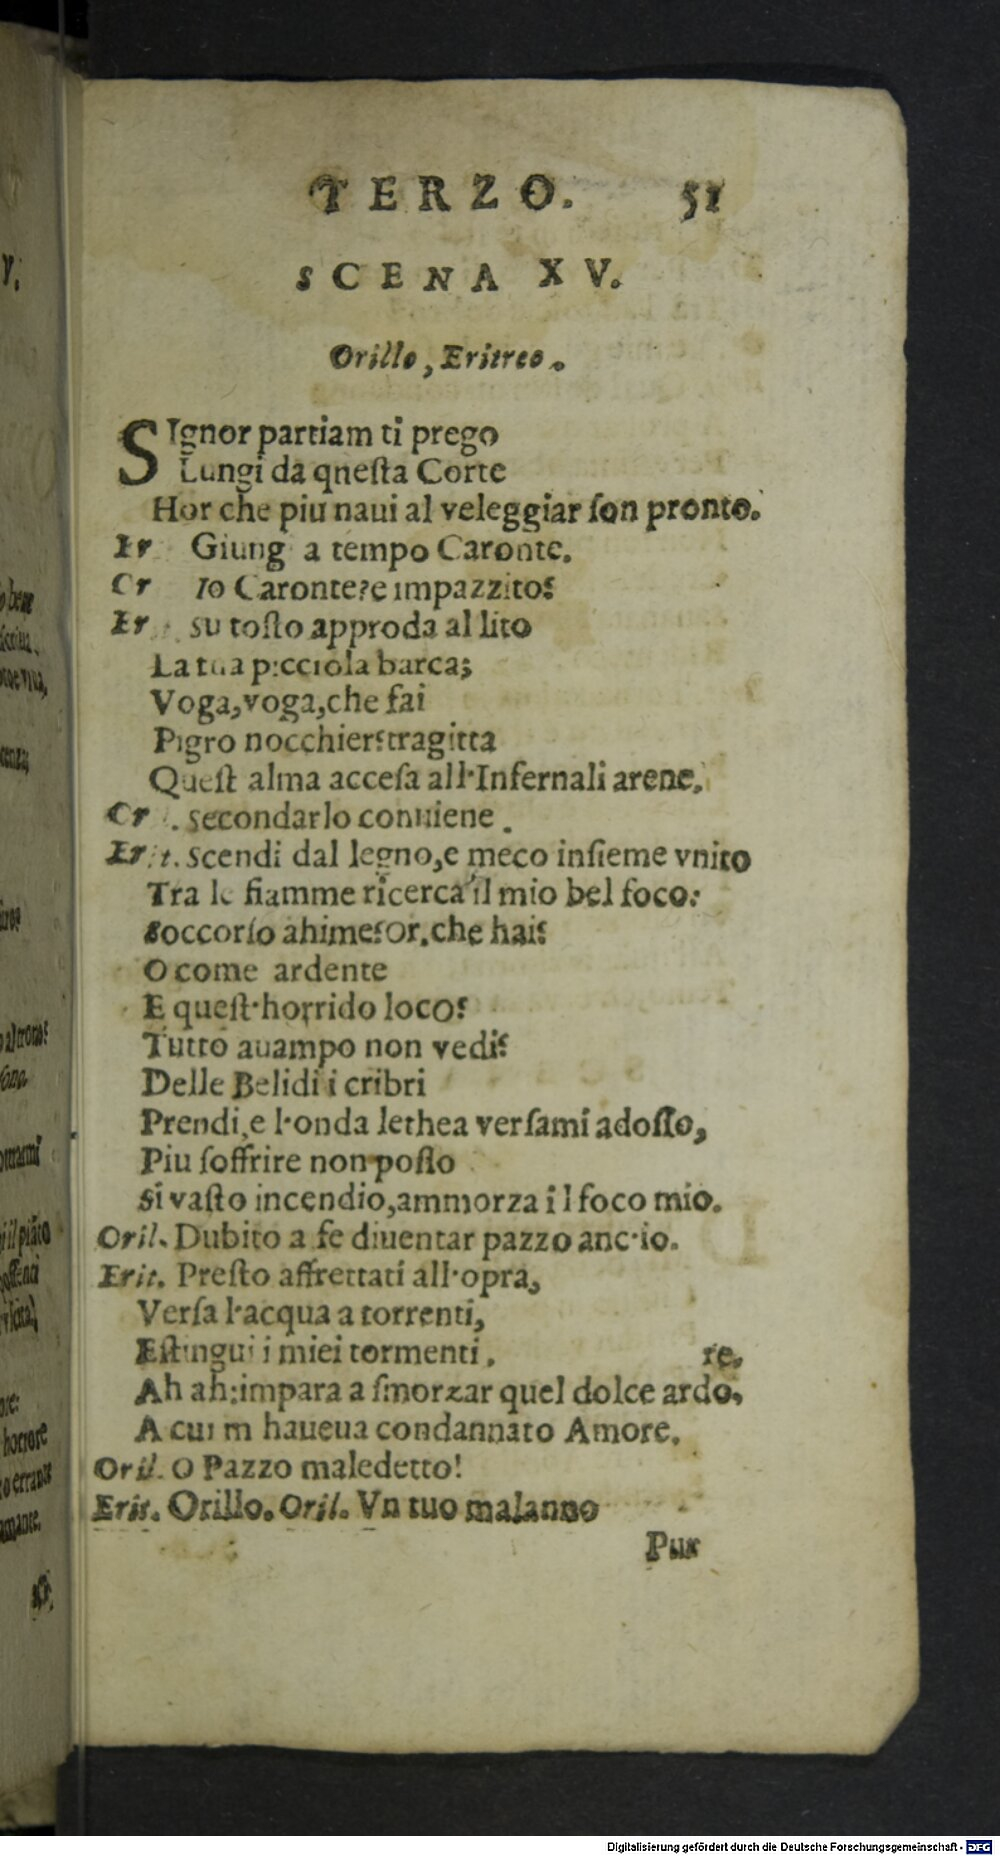 TERZO. 51
SCENA XV.
Orillo, Eritreo.
SIgnor partiam ti prego
Lungi da qnesta Corte
Hor che piu naui al veleggiar son pronto.
Er Giung a tempo Caronte.
Cr Io Caronte? e impazzito?
Er su tosto approda al lito
La tua picciola barca;
Voga, voga, che fai
Pigro nocchier? tragitta
Quest alma accesa all'Infernali arene.
Cr . secondarlo conuiene.
Erit. scendi dal legno, e meco insieme vnito
Tra le fiamme ricerca il mio bel foco:
soccorso ahime? Or. che hai?
O come ardente
E quest'horrido loco?
Tutto auampo non vedi?
Delle Belidi i cribri
Prendi, e l'onda lethea versami adosso,
Piu soffrire non posso
si vasto incendio, ammorza il foco mio.
Oril. Dubito a fe diuentar pazzo anc'io.
Erit. Presto affrettati all'opra,
Versa l'acqua a torrenti,
Estingui i miei tormenti. re.
Ah ah: impara a smorzar quel dolce ardo,
A cui m haueua condannato Amore.
Oril. O Pazzo maledetto!
Erit. Orillo. Oril. Vn tuo malanno
Pur
Digitalisierung gefördert durch die Deutsche Forschungsgemeinschaft - DFG